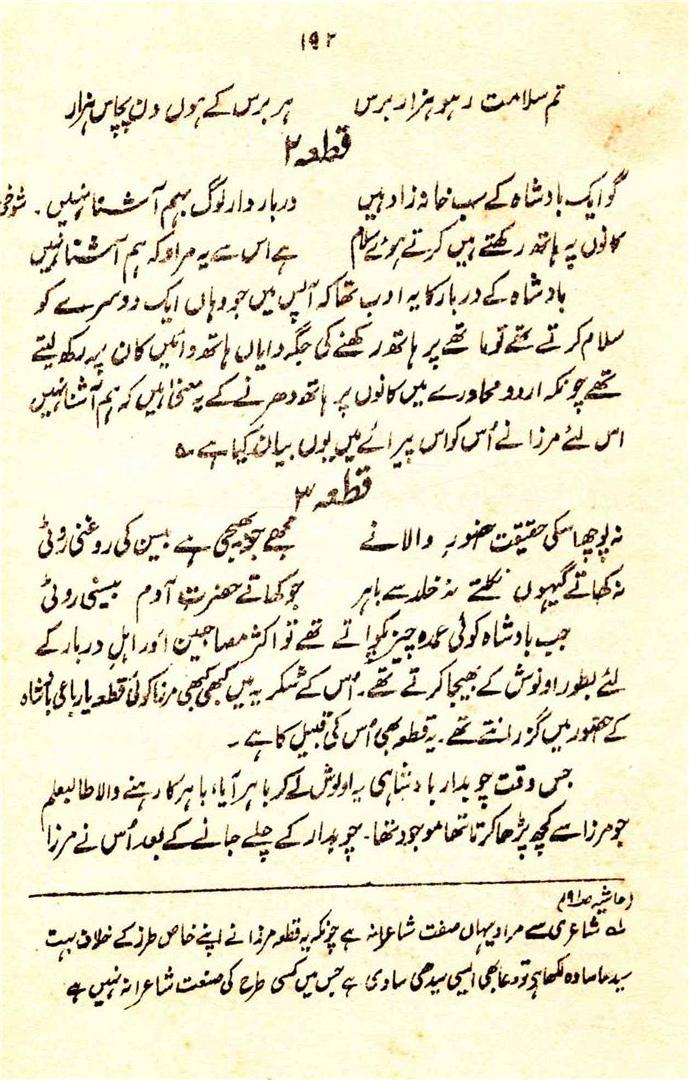 ۱۹۲
تم سلامت رہو ہزار برس ہر برس کے ہوں دن پچاس ہزار
قطعہ ۲
گو ایک بادشاہ کے سب خانہ زاد ہیں دربار دار لوگ بہم آشنا نہیں ۔ شوخی
کانوں پہ ہاتھ رکھتے ہیں کرتے ہوئے سلام ہے اس سے یہ مراد کہ ہم آشنا نہیں
بادشاہ کے دربار کا یہ ادب تھا کہ آپس میں جو وہاں ایک دوسرے کو
سلام کرتے تھے تو ماتھے پر ہاتھ رکھنے کی جگہ دایاں ہاتھ دائیں کان پر رکھ لیتے
تھے چونکہ اردو محاورے میں کانوں پر ہاتھ دھرنے کے یہ معنی ہیں کہ ہم آشنا نہیں
اس لئے مرزا نے اُس کو اس پیرائے میں یوں بیان کیا ہے ۔
قطعہ ۳
نہ پوچھ اسکی حقیقت حضورِ والا نے مجھے جو بھیجی ہے بیسن کی روغنی روٹی
نہ کھاتے گیہوں نکلتے نہ خلد سے باہر جو کھاتے حضرتِ آدم بیسنی روٹی
جب بادشاہ کوئی عمدہ چیز پکواتے تھے تو اکثر مصاحبین اور اہلِ دربار کے
لئے بطور اولوش کے بھیجا کرتے تھے۔ اُس کے شکریہ میں کبھی کبھی مرزا کوئی قطعہ یا رباعی بادشاہ
کے حضور میں گزرانتے تھے۔ یہ قطعہ بھی اُس کی قبیل کا ہے ۔
جس وقت چوبدار بادشاہی یہ اولوش لے کر باہر آیا، باہر کا رہنے والا طالبعلم
جو مرزا سے کچھ پڑھا کرتا تھا موجود تھا۔ چوبدار کے چلے جانے کے بعد اُس نے مرزا
(حاشیہ ص۱۹۱)
لہ شاعری سے مراد یہاں صفت شاعرانہ ہے چونکہ یہ قطعہ مرزا نے اپنے خاص طرز کے خلاف بہت
سیدھا سادہ لکھا ہی تو دعا بھی ایسی سیدھی سادی ہے جس میں کسی طرح کی صنعت شاعرانہ نہیں ہے